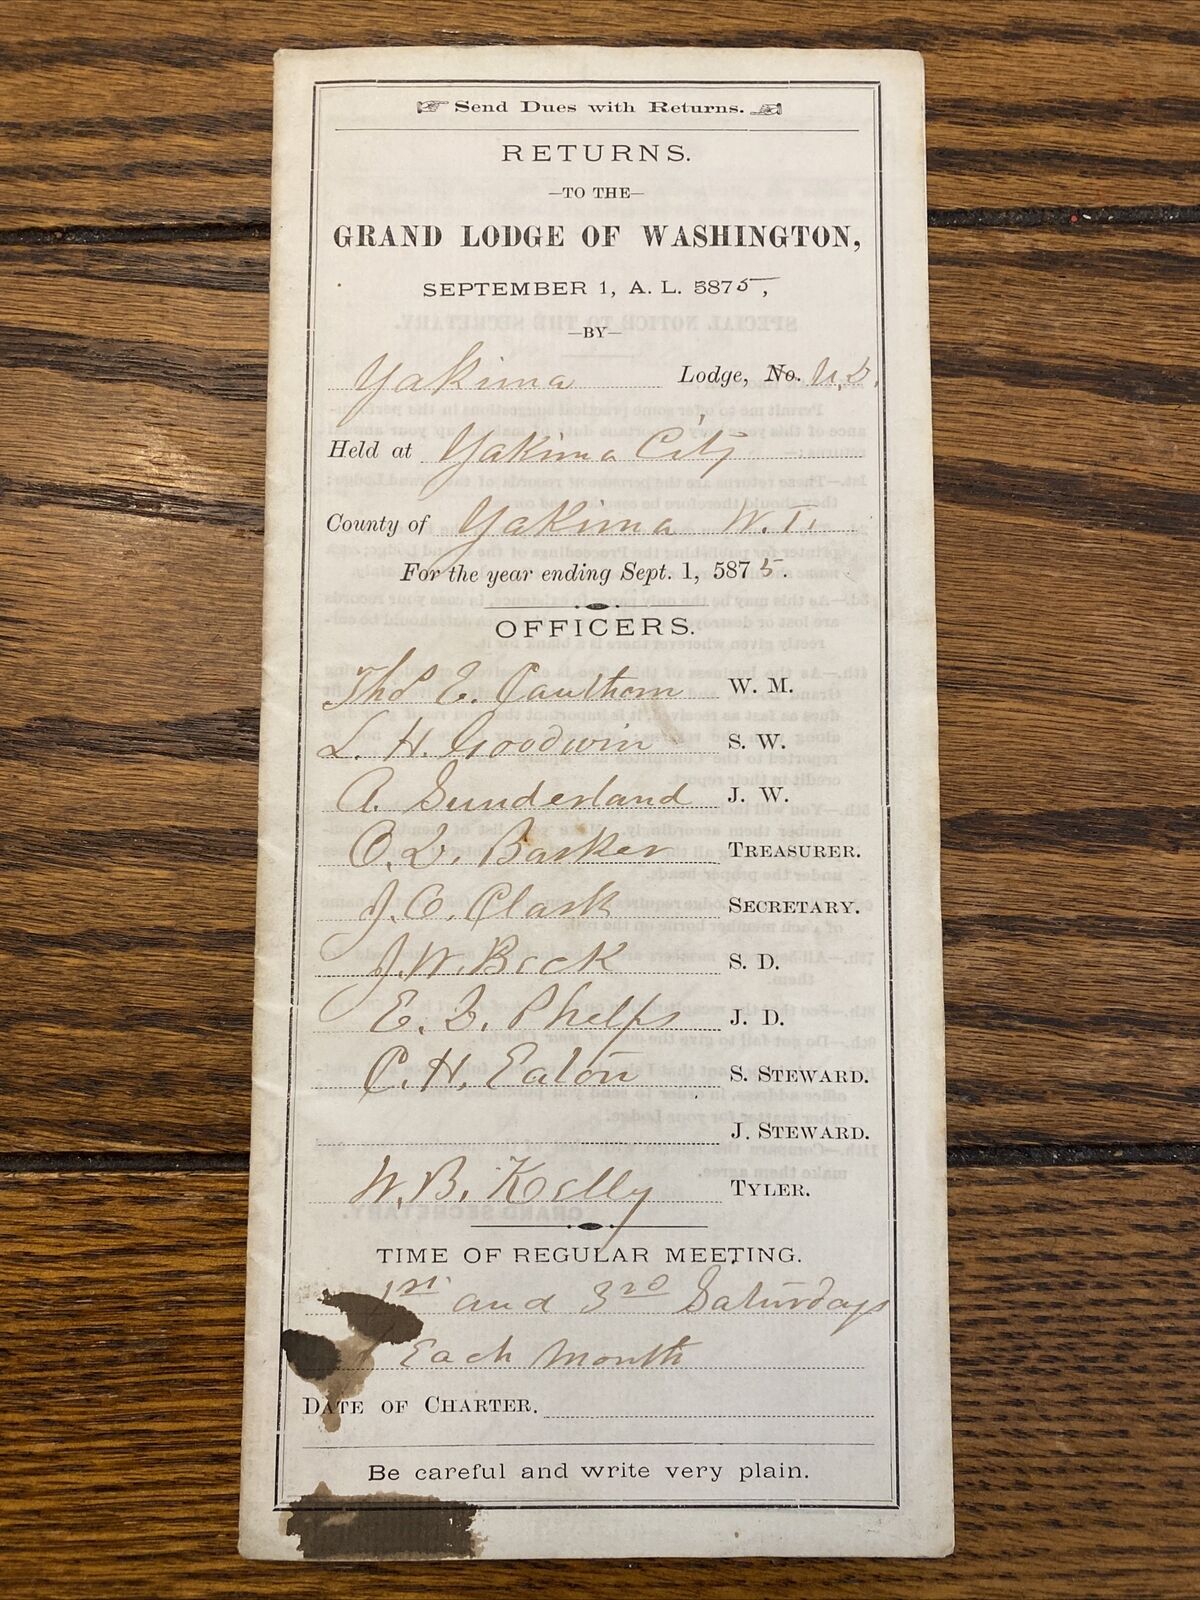 Send Dues with Returns.
RETURNS.
—TO THE—
GRAND LODGE OF WASHINGTON,
SEPTEMBER 1, A. L. 5875,
—BY—
Yakima Lodge, No. U.D.
Held at Yakima City
County of Yakima W.T.
For the year ending Sept. 1, 5875.
OFFICERS.
Thos E. Cauthorn W. M.
L. H. Goodwin S. W.
A. Sunderland J. W.
O. D. Barker TREASURER.
J. O. Clark SECRETARY.
J. W. Beck S. D.
E. D. Phelps J. D.
C. H. Eaton S. STEWARD.
J. STEWARD.
W. B. Kelly TYLER.
TIME OF REGULAR MEETING.
1st and 3rd Saturdays
Each Month
DATE OF CHARTER.
Be careful and write very plain.